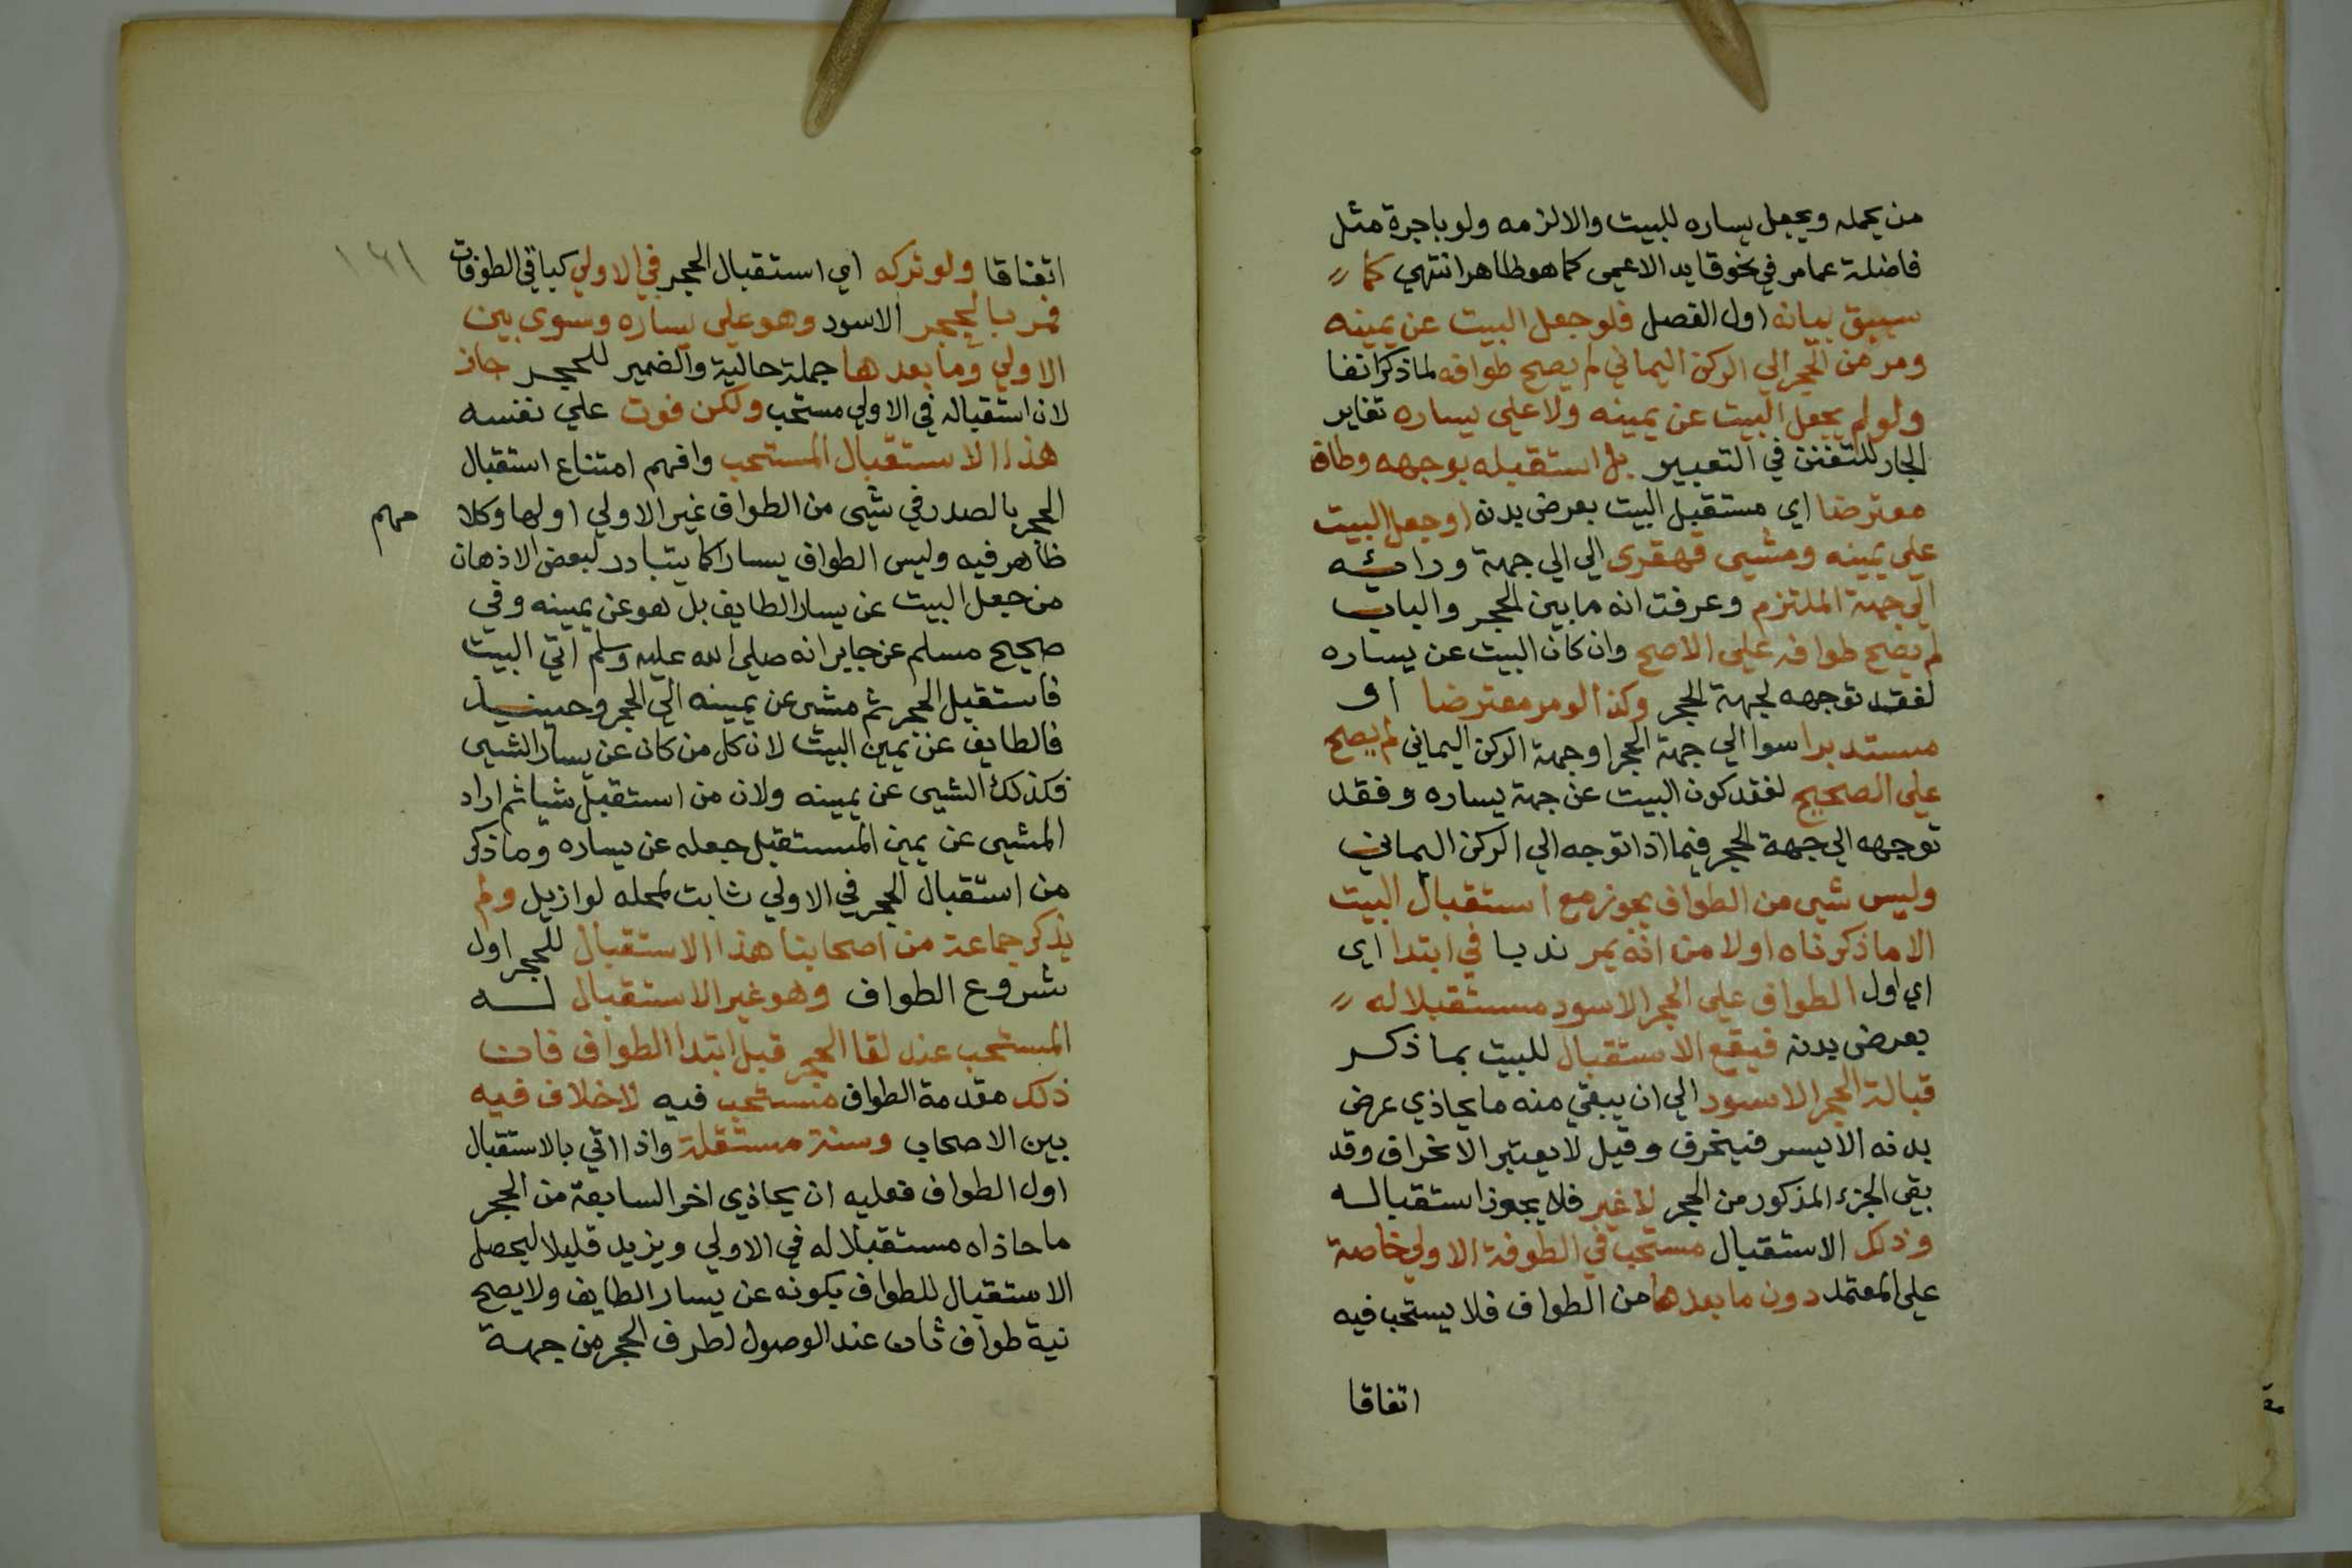 من يحمله ويجعل يساره للبيت والا لزمه ولو باجرة مثل
فاضلة عما مر في نحو قايد الاعمى كما هو ظاهر انتهي كما
سبق بيانه اول الفصل فلو جعل البيت عن يمينه
ومر من الحجر الي الركن اليماني لم يصح طوافه لما ذكر انفا
ولو لم يجعل البيت عن يمينه ولا علي يساره تغاير
الجار للتفنن في التعبير بل استقبله بوجهه وطاف
معترضا اي مستقبل البيت بعرض بدنه او جعل البيت
علي يمينه ومشي قهقري الي الي جهة ورائه
الي جهة الملتزم وعرفت انه ما بين الحجر والباب
لم يصح طوافه علي الاصح وان كان البيت عن يساره
لفقد توجهه لجهة الحجر وكذا لو مر معترضا او
مستدبرا سوا الي جهة الحجر او جهة الركن اليماني لم يصح
علي الصحيح لفقد كون البيت عن جهة يساره وفقد
توجهه الي جهة الحجر فيما اذا توجه الي الركن اليماني
وليس شيي من الطواف يجوز مع استقبال البيت
الا ما ذكرناه اولا من انه يمر ندبا في ابتدا اي
اي اول الطواف علي الحجر الاسود مستقبلا له
بعرض بدنه فيقع الاستقبال للبيت بما ذكر
قبالة الحجر الاسود الي ان يبقي منه ما يحاذي عرض
بدنه الايسر فينحرف وقيل لا يعتبر الانحراف وقد
بقي الجزء المذكور من الحجر لا غير فلا يجوز استقباله
وذلك الاستقبال مستحب في الطوفة الاولي خاصة
علي المعتمد دون ما بعدها من الطواف فلا يستحب فيه
اتفاقا
١٦١
اتفاقا ولو تركه اي استقبال الحجر في الاولي كباقي الطوفات
فمر بالحجر الاسود وهو علي يساره وسوي بين
الاولي وما بعدها جملة حالية والضمير للحجر جاز
لان استقباله في الاولي مستحب ولكن فوت علي نفسه
هذا الاستقبال المستحب وافهم امتناع استقبال
الحجر بالصدر في شيي من الطواف غير الاولي اولها وكلا
مهم
ظاهر فيه وليس الطواف يسارا كما يتبادر لبعض الاذهان
من جعل البيت عن يسار الطايف بل هو عن يمينه وفي
صحيح مسلم عن جابر انه صلي الله عليه وسلم اتي البيت
فاستقبل الحجر ثم مشي عن يمينه الي الحجر وحينيذ
فالطايف عن يمين البيت لان كل من كان عن يسار الشيي
فكذلك الشيي عن يمينه ولان من استقبل شيا ثم اراد
المشيي عن يمين المستقبل جعله عن يساره وما ذكر
من استقبال الحجر في الاولي ثابت لمحله لو ازيل ولم
يذكر جماعة من اصحابنا هذا الاستقبال للحجر اول
شروع الطواف وهو غير الاستقبال له
المستحب عند لقا الحجر قبل ابتدا الطواف فان
ذلك مقدمة الطواف مستحب فيه لا خلاف فيه
بين الاصحاب وسنة مستقلة واذا اتي بالاستقبال
اول الطواف فعليه ان يحاذي اخر السابعة من الحجر
ما حاذاه مستقبلا له في الاولي ويزيد قليلا ليحصل
الاستقبال للطواف بكونه عن يسار الطايف ولا يصح
نية طواف ثان عند الوصول لطرف الحجر من جهة